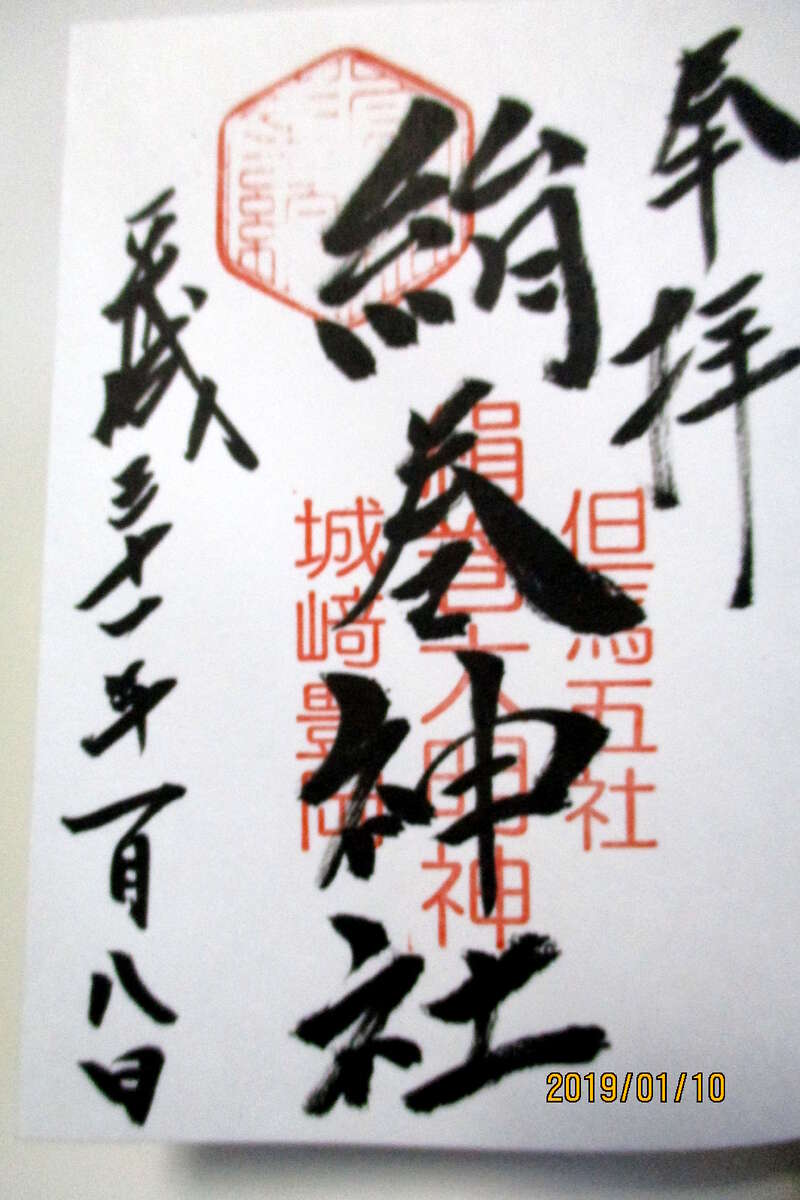 奉拝
但馬五社
絹巻大明神
城崎豊岡
絹巻神社
平成三十一年一月八日
2019/01/10